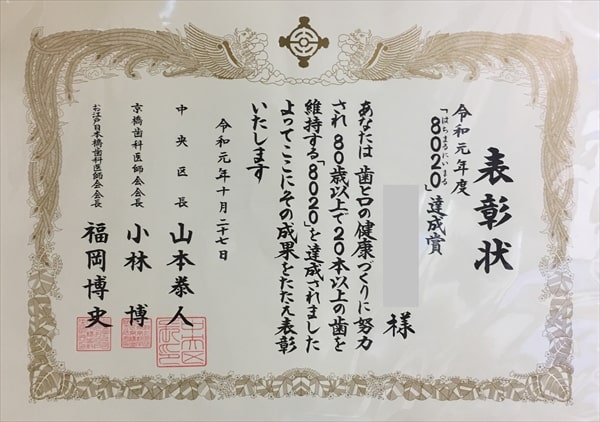 表彰状
令和元年度
「8020」達成賞
はちまるにいまる
様
あなたは 歯と口の健康づくりに努力
され 80歳以上で20本以上の歯を
維持する「8020」を達成されました
よってここにその成果をたたえ表彰
いたします
令和元年十月二十七日
中央区長 山本泰人
京橋歯科医師会会長 小林 博
お江戸日本橋歯科医師会会長 福岡博史